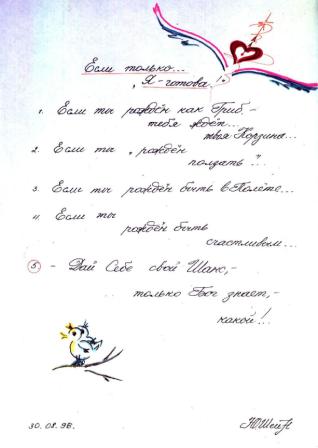 Если только...
"Я-готова!"
1. Если ты рождён как Гриб,-
тебя ждёт...
твоя Корзина...
2. Если ты "рождён
ползать"...
3. Если ты рождён быть в Полёте...
4. Если ты
рождён быть
счастливым...
5. - Дай Себе свой Шанс,-
только Бог знает,-
какой!..
30.08.98.